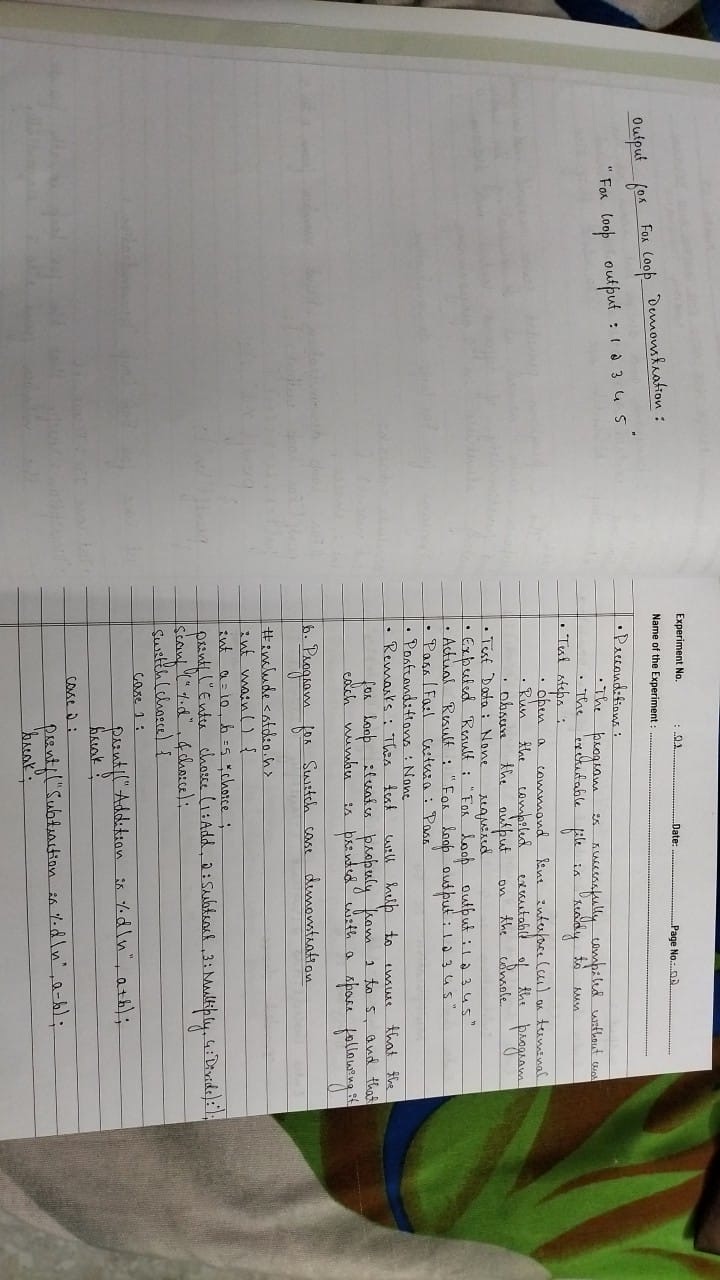 Output for For loop Demonstration :
"For loop output : 1 2 3 4 5 "
Experiment No. : 01 Date: Page No.: 02
Name of the Experiment :
• Preconditions :
• The program is successfully compiled without
• The executable file is ready to run
• Test steps :
• Open a command line interface (CLI) or terminal
• Run the compiled executable of the program
• Observe the output on the console.
• Test Data : None required
• Expected Result : "For loop output : 1 2 3 4 5 "
• Actual Result : "For loop output : 1 2 3 4 5 "
• Pass/Fail Criteria : Pass
• Postconditions : None
• Remarks : This test will help to ensure that the
for loop iterates properly from 1 to 5, and that
each number is printed with a space following it
b. Program for Switch case demonstration
#include <stdio.h>
int main() {
int a = 10, b = 5, choice ;
printf("Enter choice (1: Add, 2: Subtract, 3: Multiply, 4: Divide) : ");
scanf("%d", &choice);
Switch (choice) {
case 1 :
printf("Addition is %d\n", a+b);
break ;
case 2 :
printf("Subtraction is %d\n", a-b);
break ;